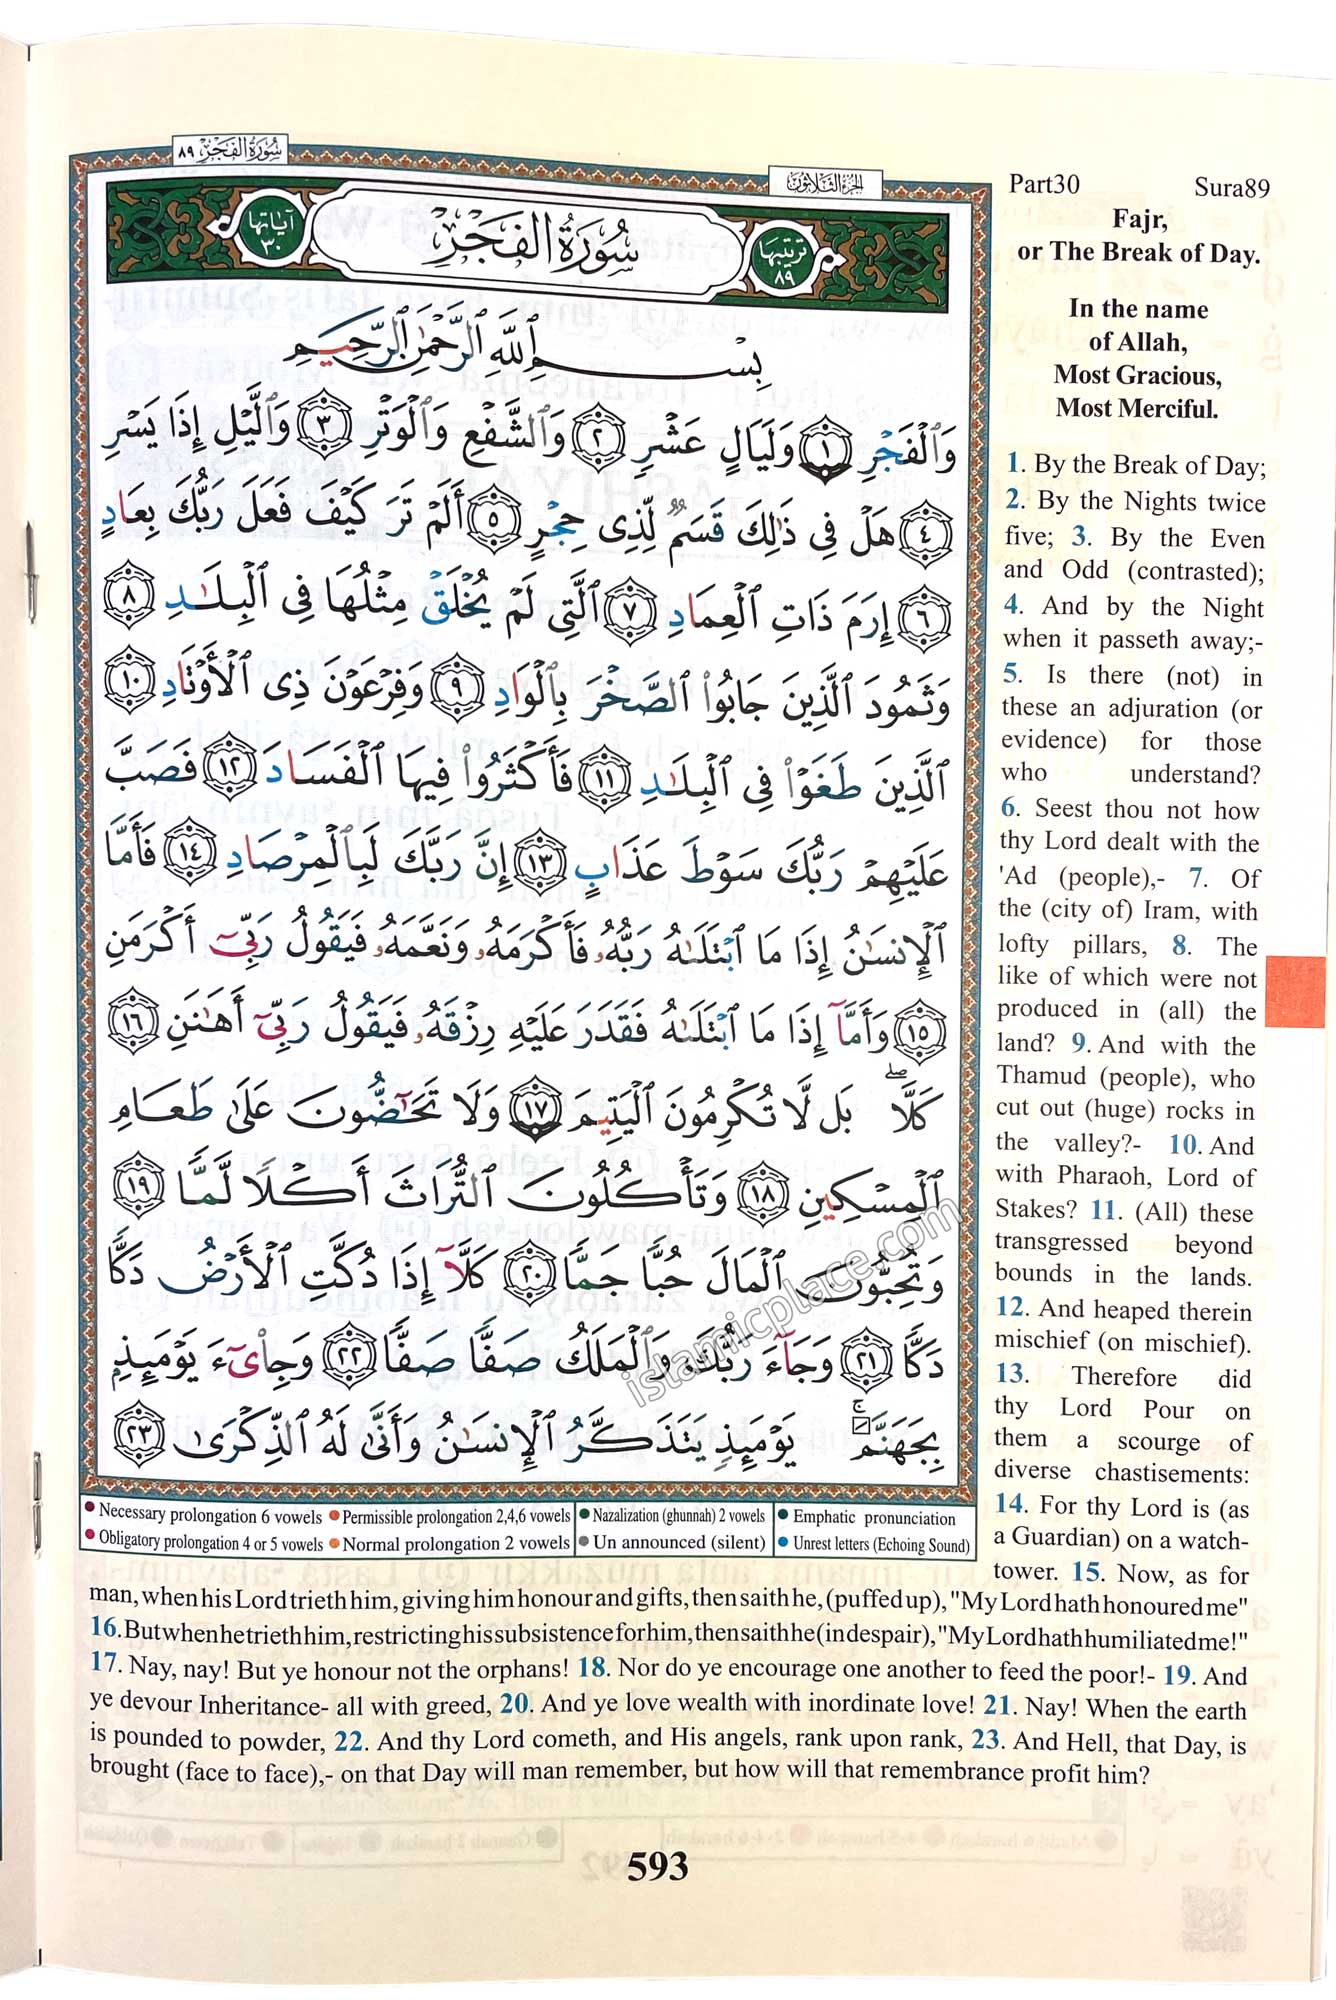 سُورَةُ الفَجْرِ ٨٩
الجُزْءُ الثَّلَاثُونَ
آيَاتُهَا ٣٠
سُورَةُ الفَجْرِ
تَرْتِيبُهَا ٨٩
بِسْمِ ٱللَّهِ ٱلرَّحْمَٰنِ ٱلرَّحِيمِ
وَٱلْفَجْرِ ١ وَلَيَالٍ عَشْرٍ ٢ وَٱلشَّفْعِ وَٱلْوَتْرِ ٣ وَٱلَّيْلِ إِذَا يَسْرِ
٤ هَلْ فِى ذَٰلِكَ قَسَمٌ لِّذِى حِجْرٍ ٥ أَلَمْ تَرَ كَيْفَ فَعَلَ رَبُّكَ بِعَادٍ
٦ إِرَمَ ذَاتِ ٱلْعِمَادِ ٧ ٱلَّتِى لَمْ يُخْلَقْ مِثْلُهَا فِى ٱلْبِلَٰدِ ٨
وَثَمُودَ ٱلَّذِينَ جَابُوا۟ ٱلصَّخْرَ بِٱلْوَادِ ٩ وَفِرْعَوْنَ ذِى ٱلْأَوْتَادِ ١٠
ٱلَّذِينَ طَغَوْا۟ فِى ٱلْبِلَٰدِ ١١ فَأَكْثَرُوا۟ فِيهَا ٱلْفَسَادَ ١٢ فَصَبَّ
عَلَيْهِمْ رَبُّكَ سَوْطَ عَذَابٍ ١٣ إِنَّ رَبَّكَ لَبِٱلْمِرْصَادِ ١٤ فَأَمَّا
ٱلْإِنسَٰنُ إِذَا مَا ٱبْتَلَىٰهُ رَبُّهُۥ فَأَكْرَمَهُۥ وَنَعَّمَهُۥ فَيَقُولُ رَبِّىٓ أَكْرَمَنِ
١٥ وَأَمَّآ إِذَا مَا ٱبْتَلَىٰهُ فَقَدَرَ عَلَيْهِ رِزْقَهُۥ فَيَقُولُ رَبِّىٓ أَهَٰنَنِ ١٦
كَلَّا ۖ بَل لَّا تُكْرِمُونَ ٱلْيَتِيمَ ١٧ وَلَا تَحَٰٓضُّونَ عَلَىٰ طَعَامِ
ٱلْمِسْكِينِ ١٨ وَتَأْكُلُونَ ٱلتُّرَاثَ أَكْلًا لَّمًّا ١٩
وَتُحِبُّونَ ٱلْمَالَ حُبًّا جَمًّا ٢٠ كَلَّآ إِذَا دُكَّتِ ٱلْأَرْضُ دَكًّا
دَكًّا ٢١ وَجَآءَ رَبُّكَ وَٱلْمَلَكُ صَفًّا صَفًّا ٢٢ وَجِا۟ىٓءَ يَوْمَئِذٍۭ
بِجَهَنَّمَ ۚ يَوْمَئِذٍ يَتَذَكَّرُ ٱلْإِنسَٰنُ وَأَنَّىٰ لَهُ ٱلذِّكْرَىٰ ٢٣
islamicplace.com
Necessary prolongation 6 vowels
Permissible prolongation 2,4,6 vowels
Nazalization (ghunnah) 2 vowels
Emphatic pronunciation
Obligatory prolongation 4 or 5 vowels
Normal prolongation 2 vowels
Un announced (silent)
Unrest letters (Echoing Sound)
Part30 Sura89
Fajr,
or The Break of Day.
In the name
of Allah,
Most Gracious,
Most Merciful.
1. By the Break of Day;
2. By the Nights twice
five; 3. By the Even
and Odd (contrasted);
4. And by the Night
when it passeth away;-
5. Is there (not) in
these an adjuration (or
evidence) for those
who understand?
6. Seest thou not how
thy Lord dealt with the
'Ad (people),- 7. Of
the (city of) Iram, with
lofty pillars, 8. The
like of which were not
produced in (all) the
land? 9. And with the
Thamud (people), who
cut out (huge) rocks in
the valley?- 10. And
with Pharaoh, Lord of
Stakes? 11. (All) these
transgressed beyond
bounds in the lands.
12. And heaped therein
mischief (on mischief).
13. Therefore did
thy Lord Pour on
them a scourge of
diverse chastisements:
14. For thy Lord is (as
a Guardian) on a watch-
tower. 15. Now, as for
man, when his Lord trieth him, giving him honour and gifts, then saith he, (puffed up), "My Lord hath honoured me"
16. But when he trieth him, restricting his subsistence for him, then saith he (in despair), "My Lord hath humiliated me!"
17. Nay, nay! But ye honour not the orphans! 18. Nor do ye encourage one another to feed the poor!- 19. And
ye devour Inheritance- all with greed, 20. And ye love wealth with inordinate love! 21. Nay! When the earth
is pounded to powder, 22. And thy Lord cometh, and His angels, rank upon rank, 23. And Hell, that Day, is
brought (face to face),- on that Day will man remember, but how will that remembrance profit him?
593